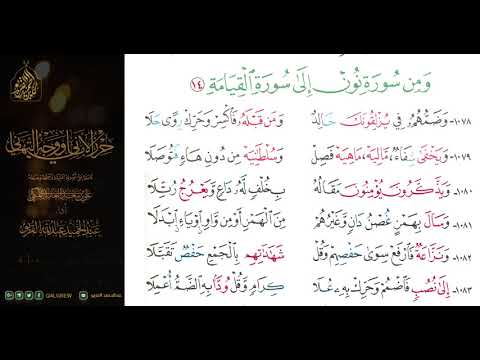 وَمِن سُورَةِ نُونٓ إِلَىٰ سُورَةِ ٱلْقِيَامَةِ ١٤
١٠٧٨- وَضَمُّهُمُ فِي يُزْلِقُونَكَ خَالِدٌ وَمَن قَبْلَهُ فَاكْسِرْ وَحَرِّكْ رِوًى حَلَا
١٠٧٩- وَيَخْفَىٰ شِفَاءً مَالِيَهْ مَاهِيَهْ فَصِلْ وَسُلْطَٰنِيَهْ مِن دُونِ هَاءٍ فَتُوصَلَا
١٠٨٠- وَيَذَّكَّرُونَ يُؤْمِنُونَ مَقَالُهُ بِخُلْفٍ لَهُ دَاعٍ وَيَعْرُجُ رُتِّلَا
١٠٨١- وَسَالَ بِهَمْزٍ غُصْنُ دَانٍ وَغَيْرُهُمْ مِنَ الْهَمْزِ أَوْ مِن وَاوٍ أَوْ يَاءٍ ابْدَلَا
١٠٨٢- وَنَزَّاعَةً فَارْفَعْ سِوَىٰ حَفْصِهِمْ وَقُلْ شَهَٰدَٰتِهِم بِالْجَمْعِ حَفْصٌ تَقَبَّلَا
١٠٨٣- إِلَىٰ نُصُبٍ فَاضْمُمْ وَحَرِّكْ بِهِ عُلَا كِرَامٍ وَقُلْ وُدًّا بِهِ الضَّمُّ أُعْمِلَا
حرز الأماني ووجه التهاني
QALGREW